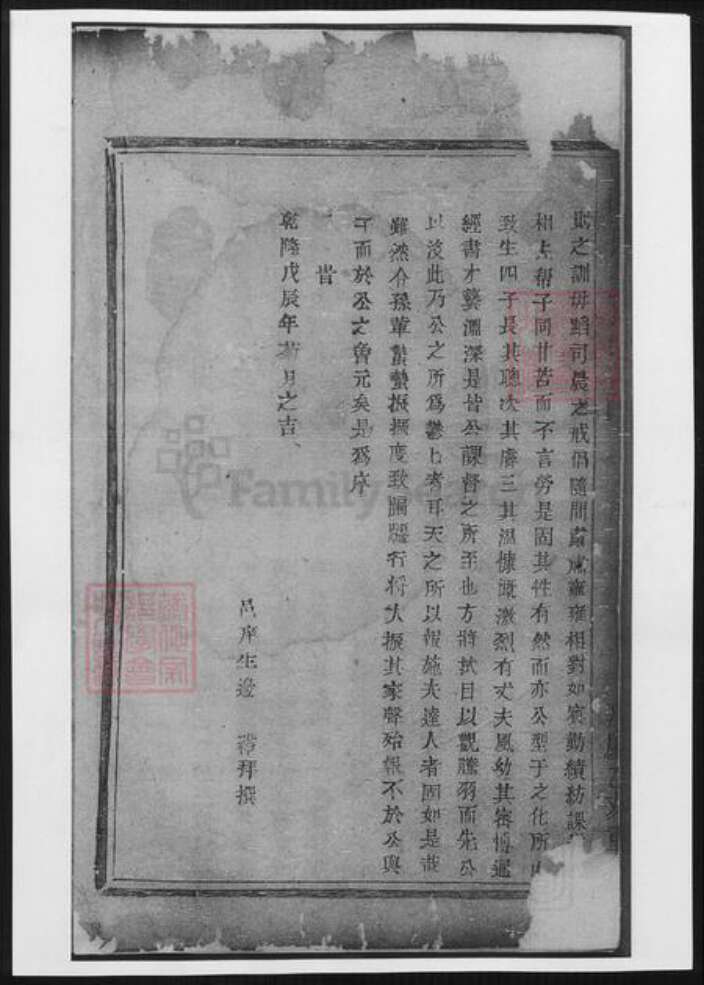 之訓毋蹈司晨之戒倡隨間肅肅雍雍相對如賓勤績紡課
相夫帮子同甘苦而不言勞是固其性有然而亦公型于之化所
致生四子長其聰次其睿三其溫慷慨激烈有丈夫風幼其密博通
經書才藝淵深是皆公課督之所至也方將拭目以觀騰羽而先公
以沒此乃公之所為鬱上者耳天之所以報施夫達人者固如是哉
雖然今孫輩蟄蟄振振度致騙行將大振其家聲殆報不於公與
而於公之會元矣是為序
告
乾隆戊辰年 月之吉
邑庠生邊 禮拜撰
FamilySearch